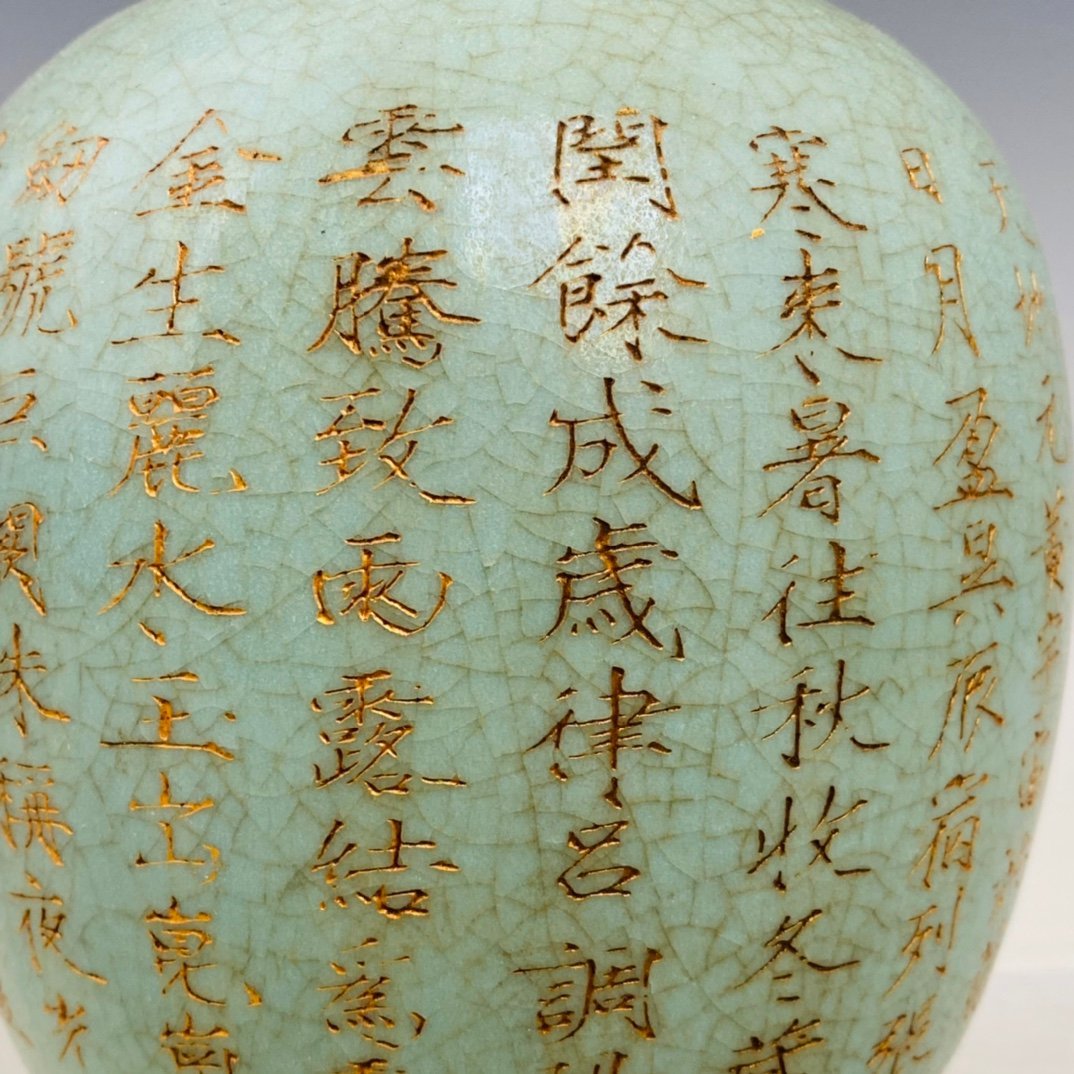 地元黃宇宙
日月盈昃辰宿列張
寒來暑往秋收冬藏
閏餘成歲律呂調
雲騰致雨露結為
金生麗水玉出崑崗
劍號巨闕珠稱夜光